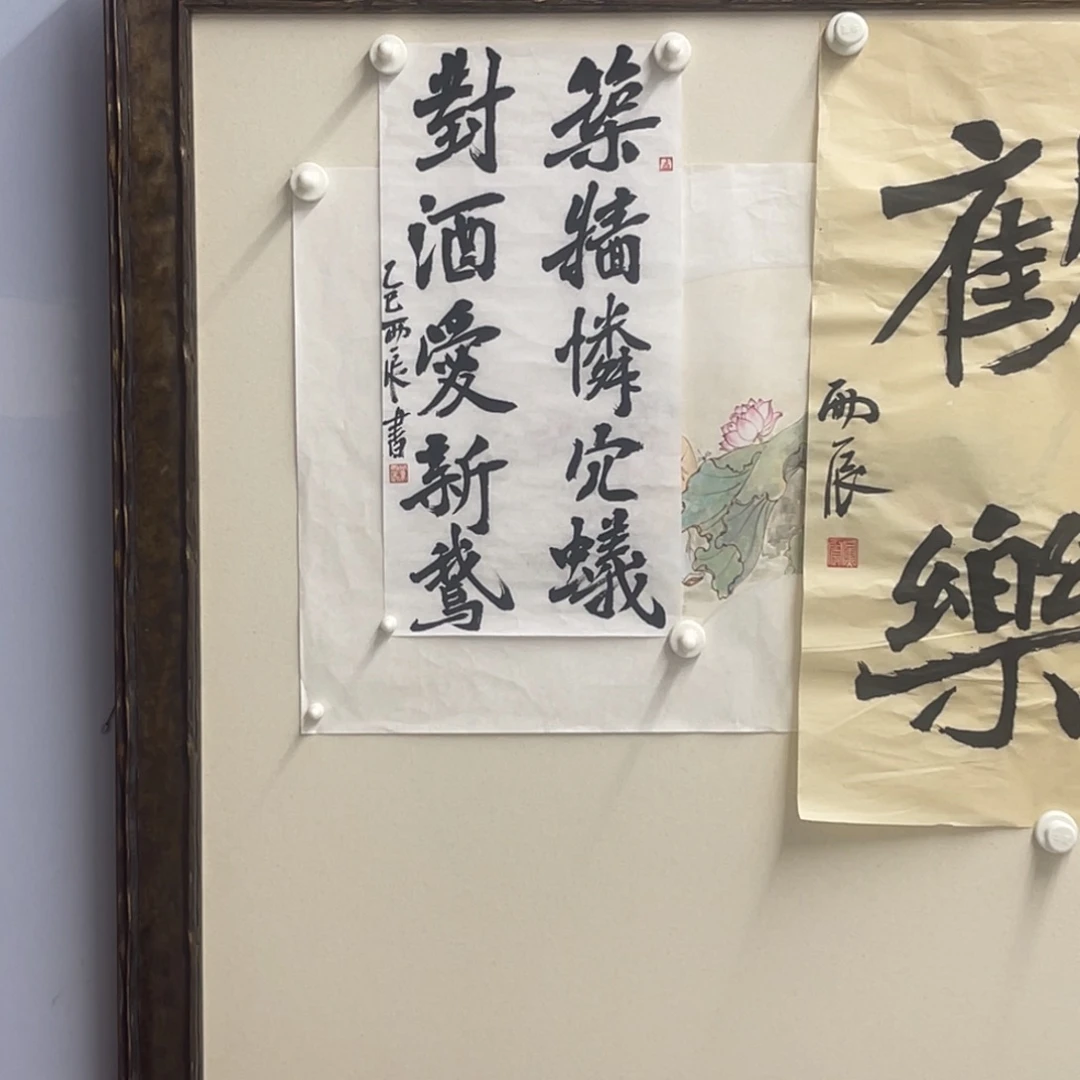 築牆憐穴蟻
對酒愛新鵞
乙巳丙辰書
樂
丙辰